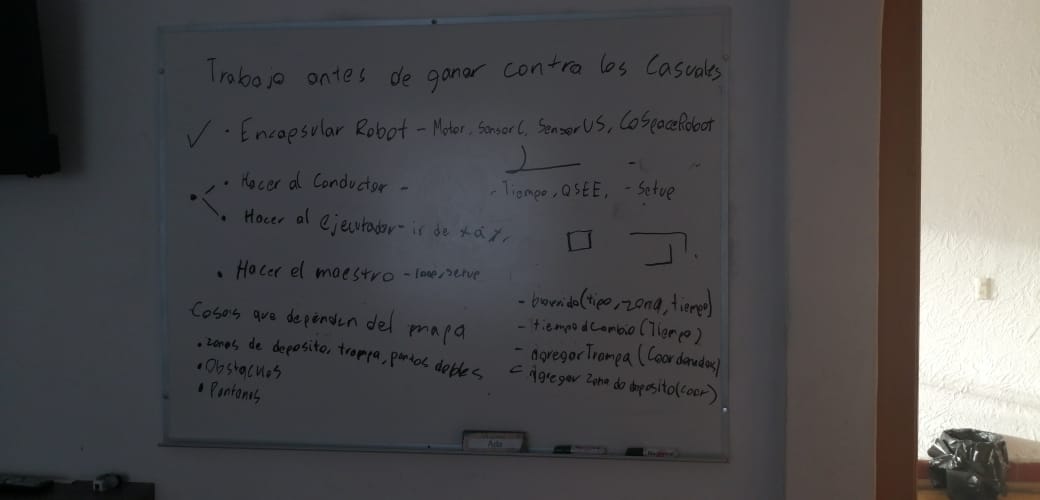 Trabajo antes de ganar contra los Casuales
✓ • Encapsular Robot - Motor, SensorC, SensorUS, CoSpaceRobot
• Hacer al Conductor -
- Tiempo, QSEE, - Setup
• Hacer al Ejecutador - ir de x a y.
• Hacer el maestro - loop, setup
Cosas que dependen del mapa
• zonas de deposito, trampa, puntos dobles
• Obstaculos
• Pantanos
- barrido(tipo, zona, tiempo)
- tiempo d Cambio (Tiempo)
- AgregarTrampa (Coordenadas)
- Agregar zona de deposito(coor)
Ada